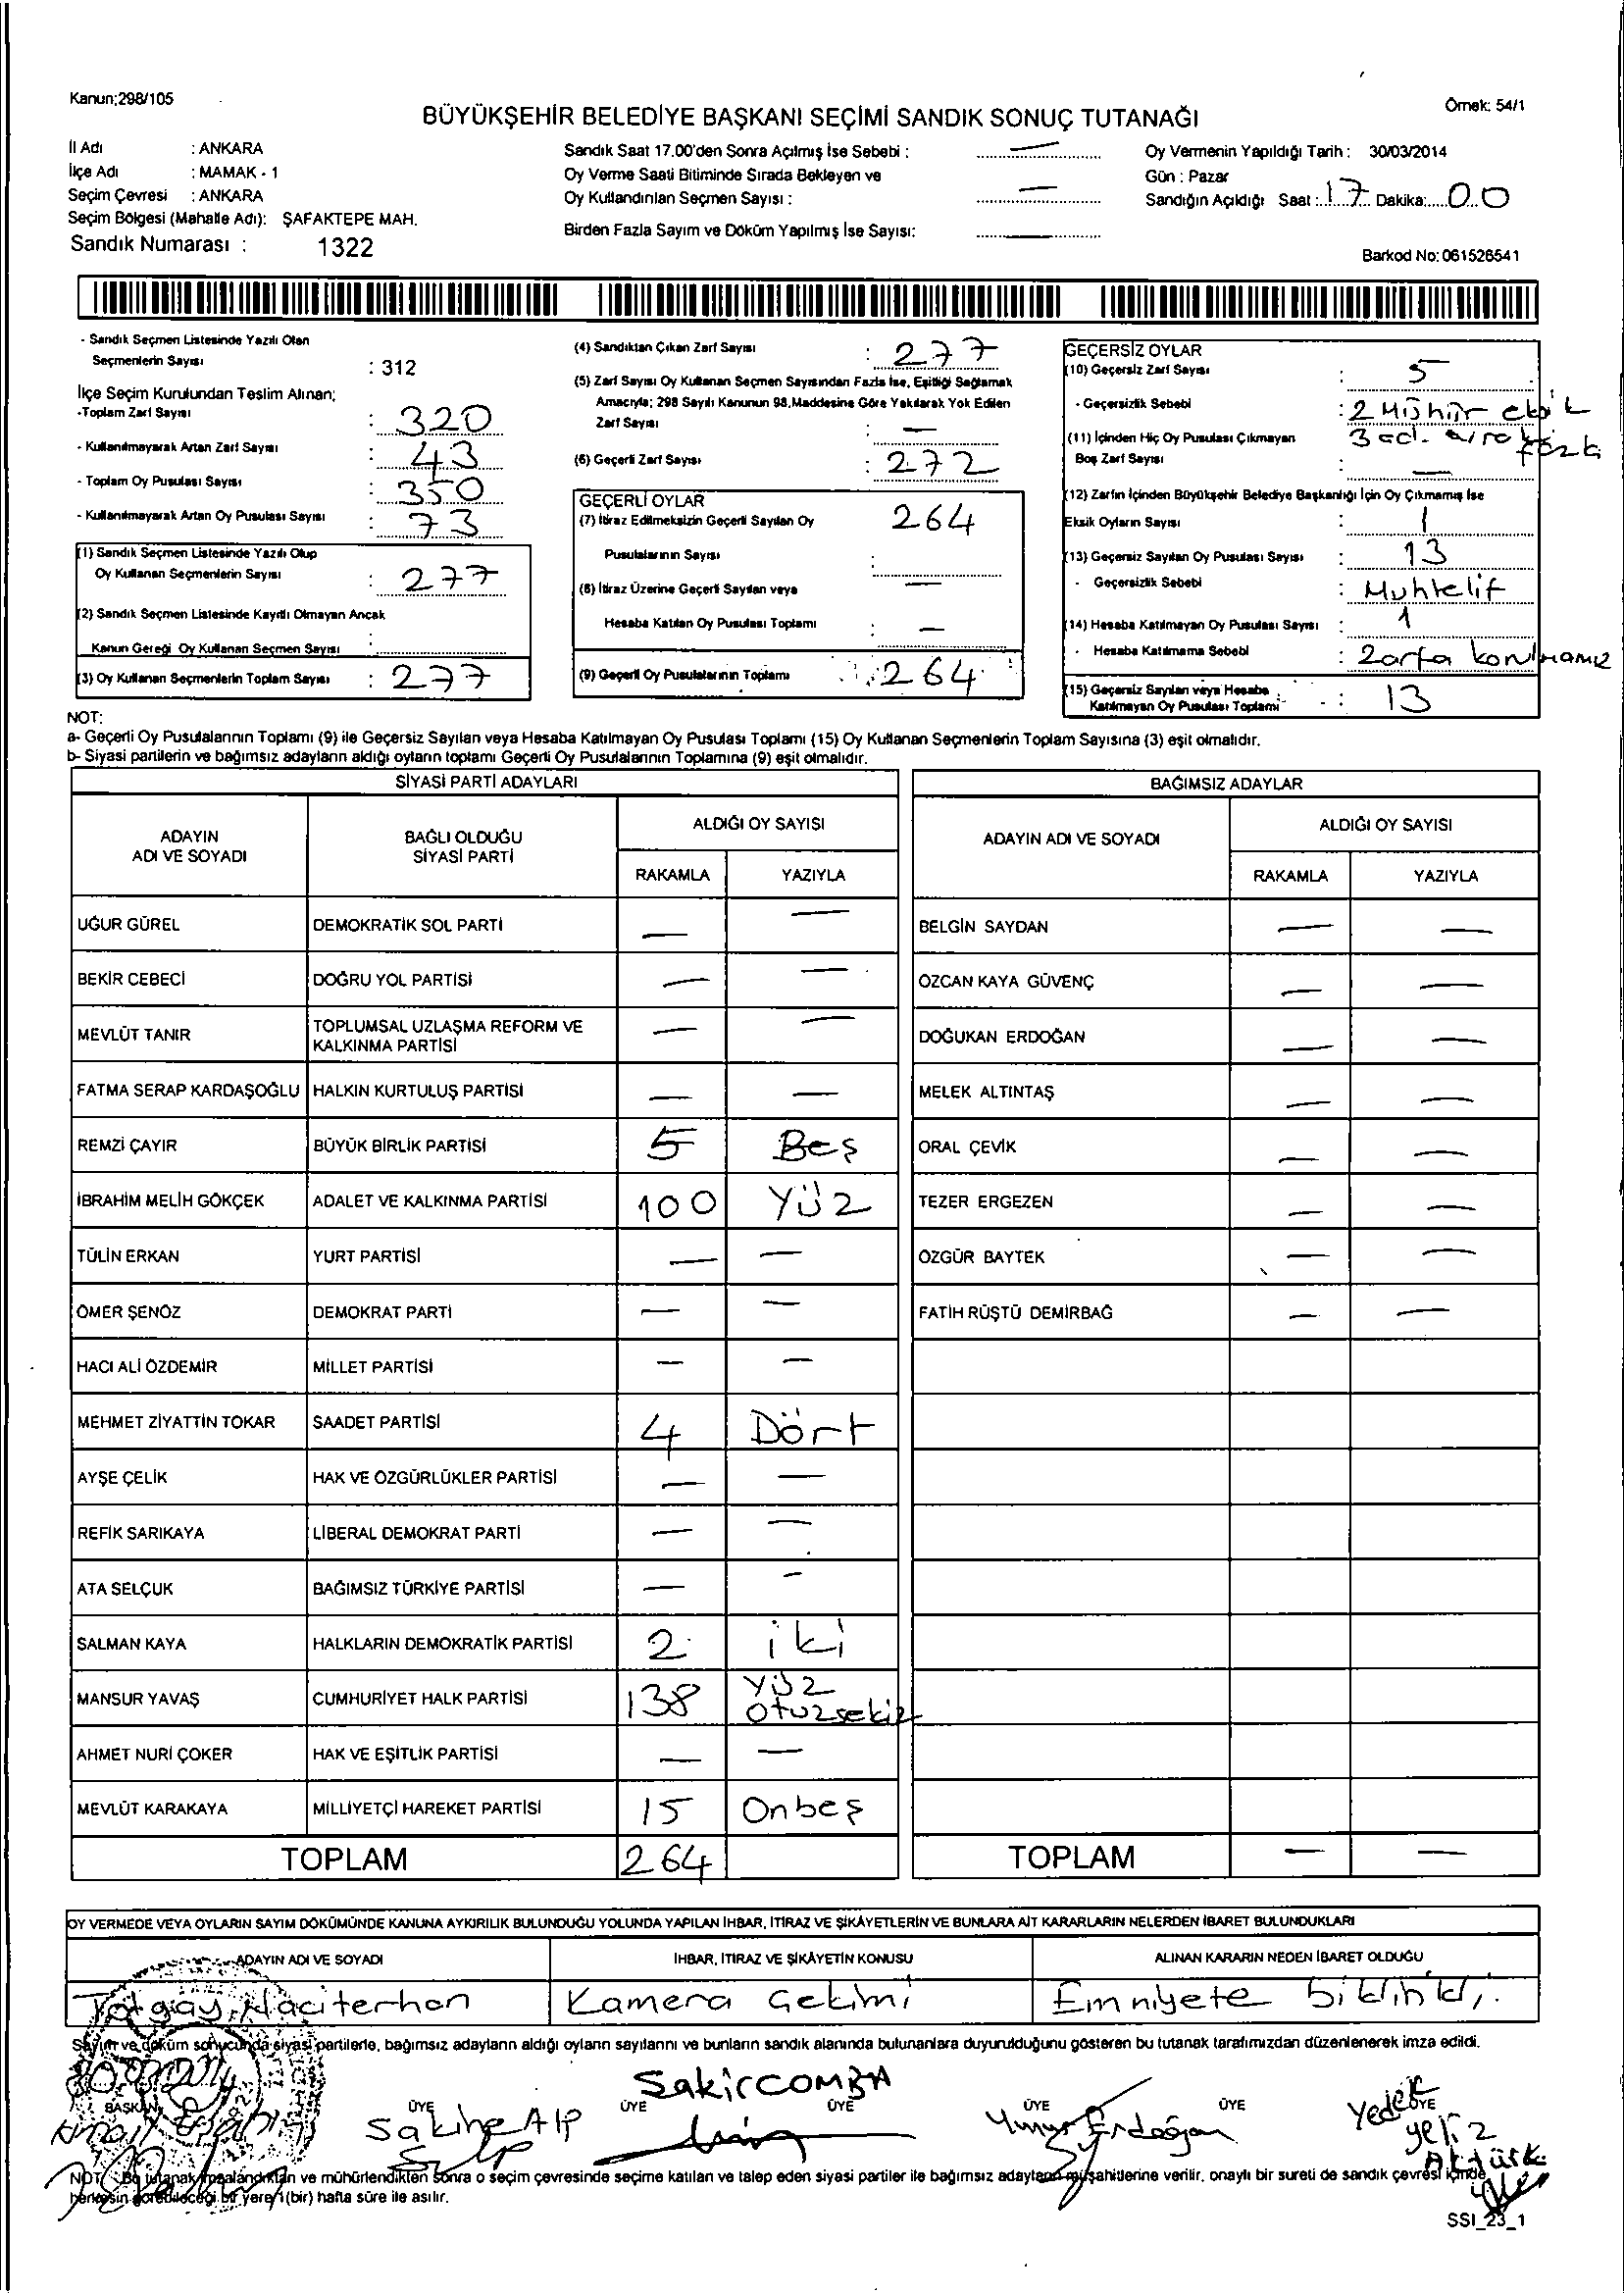 Kanun;298/105
Örnek: 54/1
BÜYÜKŞEHİR BELEDİYE BAŞKANI SEÇİMİ SANDIK SONUÇ TUTANAĞI
İl Adı : ANKARA
İlçe Adı : MAMAK - 1
Seçim Çevresi : ANKARA
Seçim Bölgesi (Mahalle Adı): ŞAFAKTEPE MAH.
Sandık Numarası : 1322
Sandık Saat 17.00'den Sonra Açılmış İse Sebebi : —
Oy Verme Saati Bitiminde Sırada Bekleyen ve
Oy Kullandırılan Seçmen Sayısı : —
Birden Fazla Sayım ve Döküm Yapılmış İse Sayısı: —
Oy Vermenin Yapıldığı Tarih : 30/03/2014
Gün : Pazar
Sandığın Açıldığı Saat : 17 Dakika: 00
Barkod No: 061526541
- Sandık Seçmen Listesinde Yazılı Olan
Seçmenlerin Sayısı : 312
İlçe Seçim Kurulundan Teslim Alınan;
-Toplam Zarf Sayısı : 320
- Kullanılmayarak Artan Zarf Sayısı : 43
- Toplam Oy Pusulası Sayısı : 350
- Kullanılmayarak Artan Oy Pusulası Sayısı : 73
(1) Sandık Seçmen Listesinde Yazılı Olup
Oy Kullanan Seçmenlerin Sayısı : 277
(2) Sandık Seçmen Listesinde Kayıtlı Olmayan Ancak
Kanun Gereği Oy Kullanan Seçmen Sayısı :
(3) Oy Kullanan Seçmenlerin Toplam Sayısı : 277
(4) Sandıktan Çıkan Zarf Sayısı : 277
(5) Zarf Sayısı Oy Kullanan Seçmen Sayısından Fazla İse, Eşitliği Sağlamak
Amacıyla; 298 Sayılı Kanunun 98.Maddesine Göre Yakılarak Yok Edilen
Zarf Sayısı : —
(6) Geçerli Zarf Sayısı : 272
GEÇERLİ OYLAR
(7) İtiraz Edilmeksizin Geçerli Sayılan Oy 264
Pusulalarının Sayısı :
(8) İtiraz Üzerine Geçerli Sayılan veya —
Hesaba Katılan Oy Pusulası Toplamı : —
(9) Geçerli Oy Pusulalarının Toplamı : 264
GEÇERSİZ OYLAR
(10) Geçersiz Zarf Sayısı : 5
- Geçersizlik Sebebi : 2 Mühür eksik
3 ad.
(11) İçinden Hiç Oy Pusulası Çıkmayan
Boş Zarf Sayısı : —
(12) Zarfın İçinden Büyükşehir Belediye Başkanlığı İçin Oy Çıkmamış İse
Eksik Oyların Sayısı : 1
(13) Geçersiz Sayılan Oy Pusulası Sayısı : 13
- Geçersizlik Sebebi : Muhtelif
(14) Hesaba Katılmayan Oy Pusulası Sayısı : 1
- Hesaba Katılmama Sebebi : Zarfa konulmamız
(15) Geçersiz Sayılan veya Hesaba
Katılmayan Oy Pusulası Toplamı : 13
NOT:
a- Geçerli Oy Pusulalarının Toplamı (9) ile Geçersiz Sayılan veya Hesaba Katılmayan Oy Pusulası Toplamı (15) Oy Kullanan Seçmenlerin Toplam Sayısına (3) eşit olmalıdır.
b- Siyasi partilerin ve bağımsız adayların aldığı oyların toplamı Geçerli Oy Pusulalarının Toplamına (9) eşit olmalıdır.
SİYASİ PARTİ ADAYLARI
ADAYIN ADI VE SOYADI BAĞLI OLDUĞU SİYASİ PARTİ ALDIĞI OY SAYISI
RAKAMLA YAZIYLA
UĞUR GÜREL DEMOKRATİK SOL PARTİ — —
BEKİR CEBECİ DOĞRU YOL PARTİSİ — —
MEVLÜT TANIR TOPLUMSAL UZLAŞMA REFORM VE KALKINMA PARTİSİ — —
FATMA SERAP KARDAŞOĞLU HALKIN KURTULUŞ PARTİSİ — —
REMZİ ÇAYIR BÜYÜK BİRLİK PARTİSİ 5 Beş
İBRAHİM MELİH GÖKÇEK ADALET VE KALKINMA PARTİSİ 100 Yüz
TÜLİN ERKAN YURT PARTİSİ — —
ÖMER ŞENÖZ DEMOKRAT PARTİ — —
HACI ALİ ÖZDEMİR MİLLET PARTİSİ — —
MEHMET ZİYATTİN TOKAR SAADET PARTİSİ 4 Dört
AYŞE ÇELİK HAK VE ÖZGÜRLÜKLER PARTİSİ — —
REFİK SARIKAYA LİBERAL DEMOKRAT PARTİ — —
ATA SELÇUK BAĞIMSIZ TÜRKİYE PARTİSİ — —
SALMAN KAYA HALKLARIN DEMOKRATİK PARTİSİ 2 iki
MANSUR YAVAŞ CUMHURİYET HALK PARTİSİ 138 Yüz otuzsekiz
AHMET NURİ ÇOKER HAK VE EŞİTLİK PARTİSİ — —
MEVLÜT KARAKAYA MİLLİYETÇİ HAREKET PARTİSİ 15 Onbeş
TOPLAM 264
BAĞIMSIZ ADAYLAR
ADAYIN ADI VE SOYADI ALDIĞI OY SAYISI
RAKAMLA YAZIYLA
BELGİN SAYDAN — —
ÖZCAN KAYA GÜVENÇ — —
DOĞUKAN ERDOĞAN — —
MELEK ALTINTAŞ — —
ORAL ÇEVİK — —
TEZER ERGEZEN — —
ÖZGÜR BAYTEK — —
FATİH RÜŞTÜ DEMİRBAĞ — —
TOPLAM — —
OY VERMEDE VEYA OYLARIN SAYIM DÖKÜMÜNDE KANUNA AYKIRILIK BULUNDUĞU YOLUNDA YAPILAN İHBAR, İTİRAZ VE ŞİKÂYETLERİN VE BUNLARA AİT KARARLARIN NELERDEN İBARET BULUNDUKLARI
ADAYIN ADI VE SOYADI İHBAR, İTİRAZ VE ŞİKÂYETİN KONUSU ALINAN KARARIN NEDEN İBARET OLDUĞU
Kamera Çekimi Emniyete
Sayım ve döküm sonucunda siyasi partilerle, bağımsız adayların aldığı oyların sayılarını ve bunların sandık alanında bulunanlara duyurulduğunu gösteren bu tutanak tarafımızdan düzenlenerek imza edildi.
BAŞKAN ÜYE ÜYE ÜYE ÜYE ÜYE ÜYE
Sakine Alp
Sakir COMBA
Erdoğan
Yedek
Yeliz
Aktürk
NOT: Bu tutanak imzalandıktan ve mühürlendikten sonra o seçim çevresinde seçime katılan ve talep eden siyasi partiler ile bağımsız adayların müşahitlerine verilir, onaylı bir sureti de sandık çevresi içinde
herkesin görebileceği bir yere 1(bir) hafta süre ile asılır.
SSI_23_1